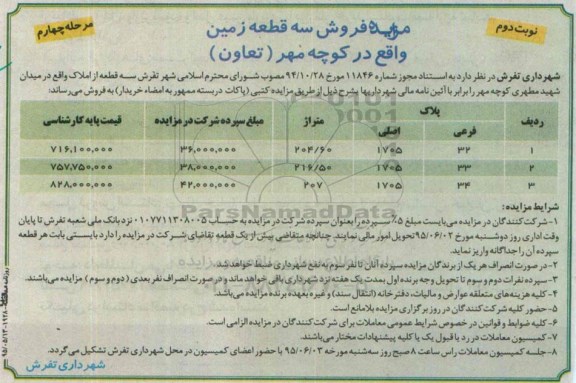 نوبت دوم
مرحله چهارم
مزایده فروش سه قطعه زمین
واقع در کوچه مهر ( تعاون )
شهرداری تفرش در نظر دارد به استناد مجوز شماره ۱۱۸۴۶ مورخ ۹۴/۱۰/۲۸ مصوب شورای محترم اسلامی شهر تفرش سه قطعه از املاک واقع در میدان
شهید مطهری کوچه مهر را برابر با آئین نامه مالی شهرداریها بشرح ذیل از طریق مزایده کتبی (پاکات دربسته ممهور به امضاء خریدار) به فروش می‌رساند:
ردیف پلاک متراژ مبلغ سپرده شرکت در مزایده قیمت پایه کارشناسی
فرعی اصلی
۱ ۳۲ ۱۷۰۵ ۲۰۴/۶۰ ۳۶,۰۰۰,۰۰۰ ۷۱۶,۱۰۰,۰۰۰
۲ ۳۳ ۱۷۰۵ ۲۱۶/۵۰ ۳۸,۰۰۰,۰۰۰ ۷۵۷,۷۵۰,۰۰۰
۳ ۳۴ ۱۷۰۵ ۲۰۷ ۴۲,۰۰۰,۰۰۰ ۸۲۸,۰۰۰,۰۰۰
ParsNamadData
شرایط مزایده:
۱- شرکت کنندگان در مزایده می‌بایست مبلغ ۵٪ سپرده را بعنوان سپرده شرکت در مزایده به حساب ۰۱۰۷۷۱۱۳۰۸۰۰۵ نزد بانک ملی شعبه تفرش تا پایان
وقت اداری روز دوشنبه مورخ ۹۵/۰۶/۰۲ تحویل امور مالی نمایند. چنانچه متقاضی بیش از یک قطعه تقاضای شرکت در مزایده را دارد بایستی بابت هر قطعه
سپرده آن را جداگانه واریز نماید.
۲- در صورت انصراف هر یک از برندگان مزایده سپرده آنان تا نفر سوم به نفع شهرداری ضبط خواهد شد.
۳- سپرده نفرات دوم و سوم تا تحویل وجه برنده اول بمدت یک هفته نزد شهرداری باقی خواهد ماند و در صورت انصراف نفر بعدی (دوم و سوم) مزایده می‌باشند.
۴- کلیه هزینه‌های متعلقه عوارض و مالیات، دفترخانه (انتقال سند) و غیره بعهده برنده مزایده می‌باشد.
۵- حضور کلیه شرکت کنندگان در روز برگزاری مزایده بلامانع است.
۶- کلیه ضوابط و قوانین در خصوص شرایط عمومی معاملات برای شرکت کنندگان در مزایده الزامی است.
۷- کمیسیون معاملات در رد یا قبول یک یا کلیه پیشنهادات مختار می‌باشد.
۸- جلسه کمیسیون معاملات راس ساعت ۸ صبح روز سه‌شنبه مورخه ۹۵/۰۶/۰۳ با حضور اعضای کمیسیون در محل شهرداری تفرش تشکیل می‌گردد.
شهرداری تفرش